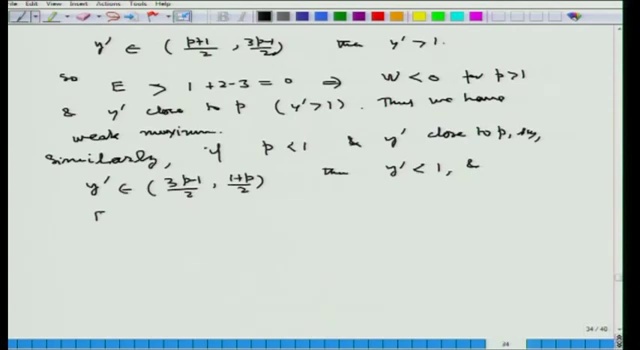 File View Insert Actions Tools Help
y' ∈ ( p+1/2 , 3p-1/2 ) then y' > 1.
So E > 1 + 2 - 3 = 0 ⇒ W < 0 for p > 1
& y' close to p ( y' > 1 ) . Thus we have
weak maximum.
Similarly, if p < 1 & y' close to p, say,
y' ∈ ( 3p-1/2 , 1+p/2 ) then y' < 1, &
34 / 40
34